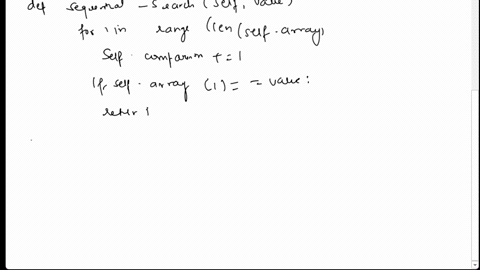 def sequential - Search (self, value)
for i in range (len (self.array)
Self. comparison += 1
If self. array (i) = = value:
return i